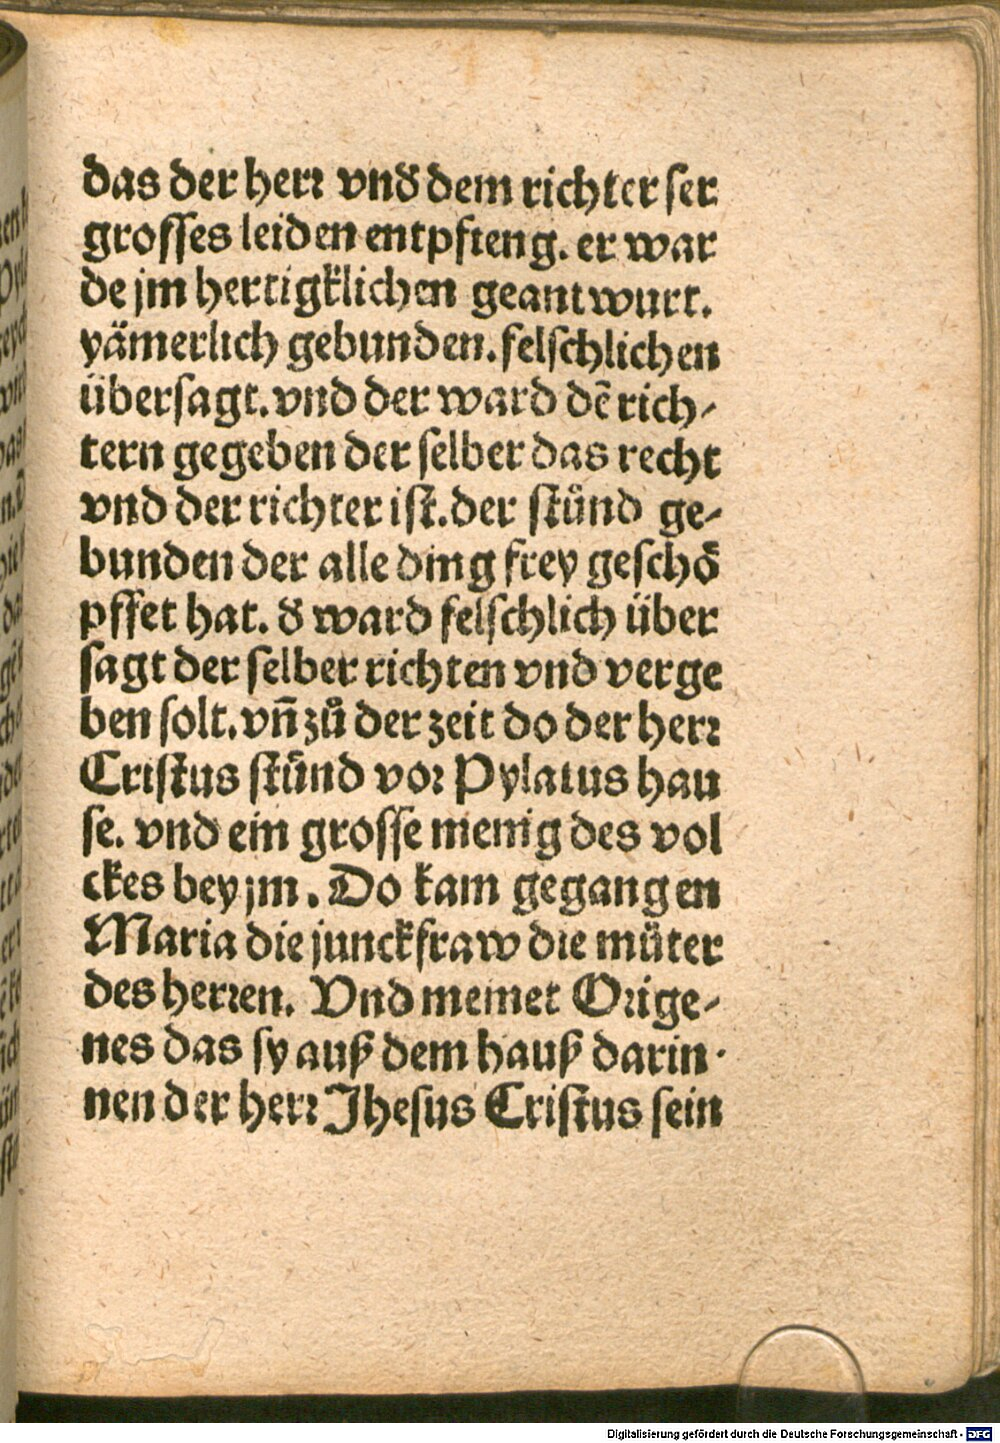 das der herr vnd̕ dem richter ser
grosses leiden entpfieng. er war
de jm hertigklichen geantwurt.
yämerlich gebunden. felschlichen
übersagt. vnd der ward dē rich⸗
tern gegeben der selber das recht
vnd der richter ist. der stůnd ge⸗
bunden der alle ding frey geschö
pffet hat. d̕ ward felschlich über
sagt der selber richten vnd verge
ben solt. vn̄ zů der zeit do der herr
Cristus stůnd vor Pylatus hau
se. vnd ein grosse menig des vol
ckes bey jm. Do kam gegangen
Maria die junckfraw die můter
des herren. Vnd meinet Orige⸗
nes das sy auß dem hauß darin⸗
nen der herr Jhesus Cristus sein
Digitalisierung gefördert durch die Deutsche Forschungsgemeinschaft - DFG